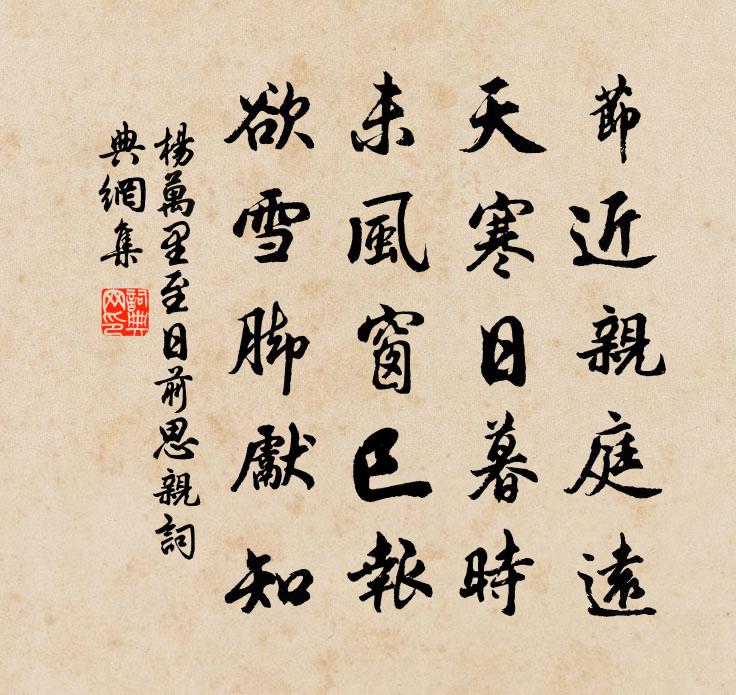 節近親庭遠
天寒日暮時
未風窗已報
欲雪脚獻知
楊萬里至日前思親詞
典網集
詞典網印